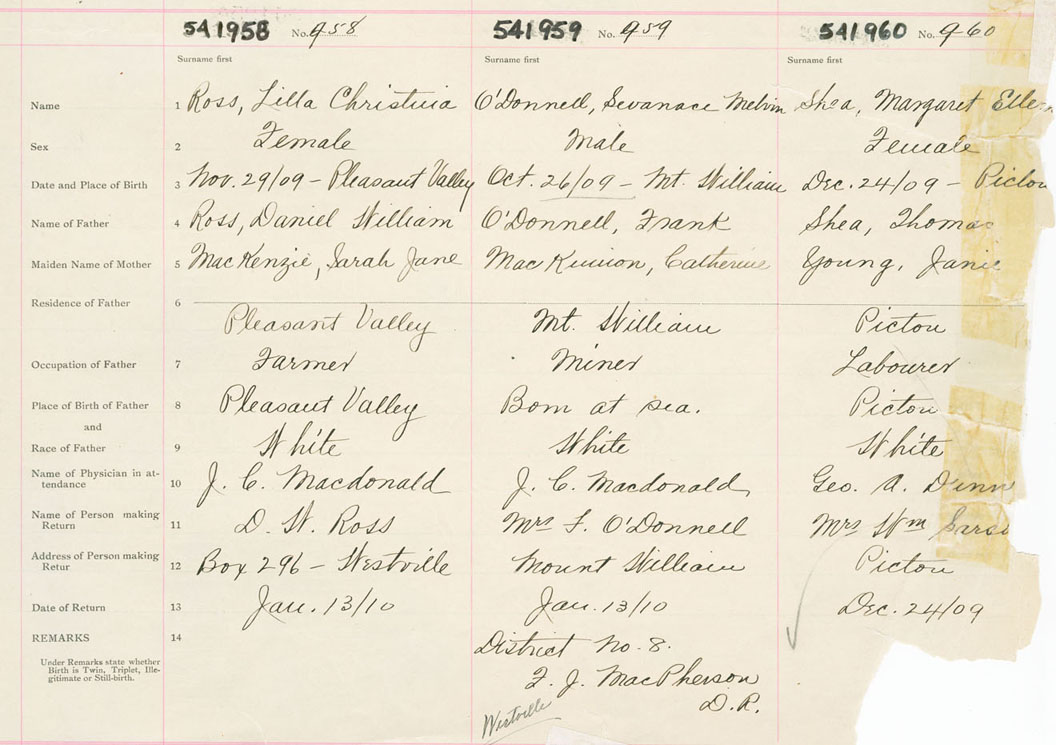 541958 No. 958 541959 No. 959 541960 No. 960
Surname first Surname first Surname first
Name 1 Ross, Lilla Christina O'Donnell, Sevanace Melvin Shea, Margaret Ellen
Sex 2 Female Male Female
Date and Place of Birth 3 Nov. 29/09 – Pleasant Valley Oct. 26/09 – Mt. William Dec. 24/09 – Pictou
Name of Father 4 Ross, Daniel William O'Donnell, Frank Shea, Thomas
Maiden Name of Mother 5 MacKenzie, Sarah Jane MacKinnon, Catherine Young, Janie
Residence of Father 6
Pleasant Valley Mt. William Pictou
Occupation of Father 7 Farmer Miner Labourer
Place of Birth of Father 8 Pleasant Valley Born at sea. Pictou
and
Race of Father 9 White White White
Name of Physician in at-
tendance 10 J. C. Macdonald J. C. Macdonald Geo. A. Dunn
Name of Person making
Return 11 D. W. Ross Mrs F. O'Donnell Mrs Wm
Address of Person making
Retur 12 Box 296 – Westville Mount William Pictou
Date of Return 13 Jan. 13/10 Jan. 13/10 Dec. 24/09
REMARKS 14 District No. 8.
Under Remarks state whether
Birth is Twin, Triplet, Ille-
gitimate or Still-birth.
F. J. MacPherson
D. R.
Westville